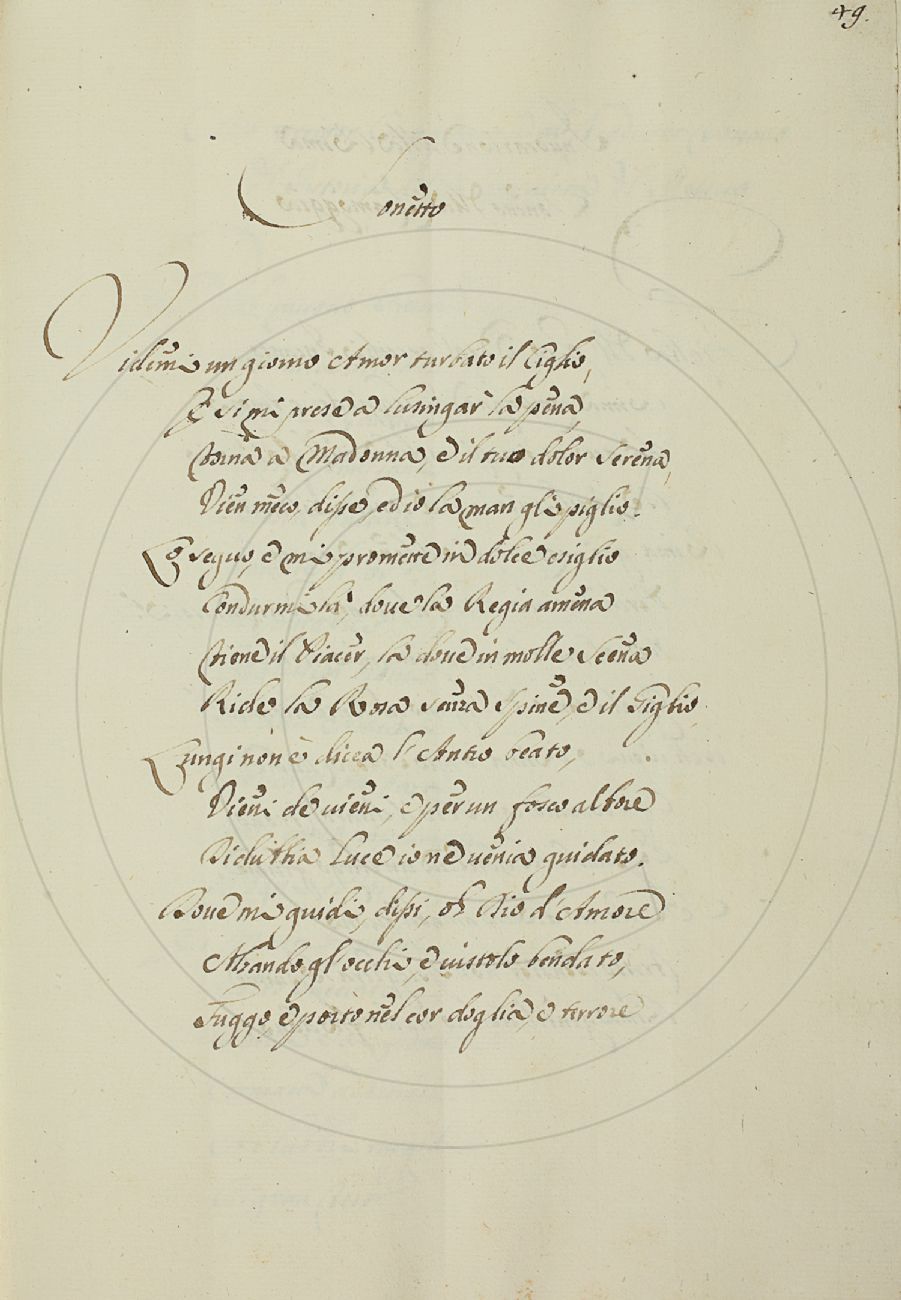 49.
Sonetto
Videmi un giorno Amor turbato il Ciglio,
E si mi prese a lusingar la pena,
Torna a Madonna, e il tuo dolor serena,
Vien meco, disse, ed io la man gli piglio.
Lo seguo, e mi promette in dolce esiglio
Condurmi là, dove la Regia amena
Tiene il Piacer, là dove in molle Scena
Ride la Rosa senza Spine, e il Giglio,
Lungi non è dicea l'Antro beato,
Vieni de vieni, e per un fosco albore
Più che luce io ne venia guidato.
Dove mi guidi, dissi, oh Dio d'Amore
Alzando gl'occhi, e vistolo bendato,
Fuggo, e porto nel cor doglia, e terrore